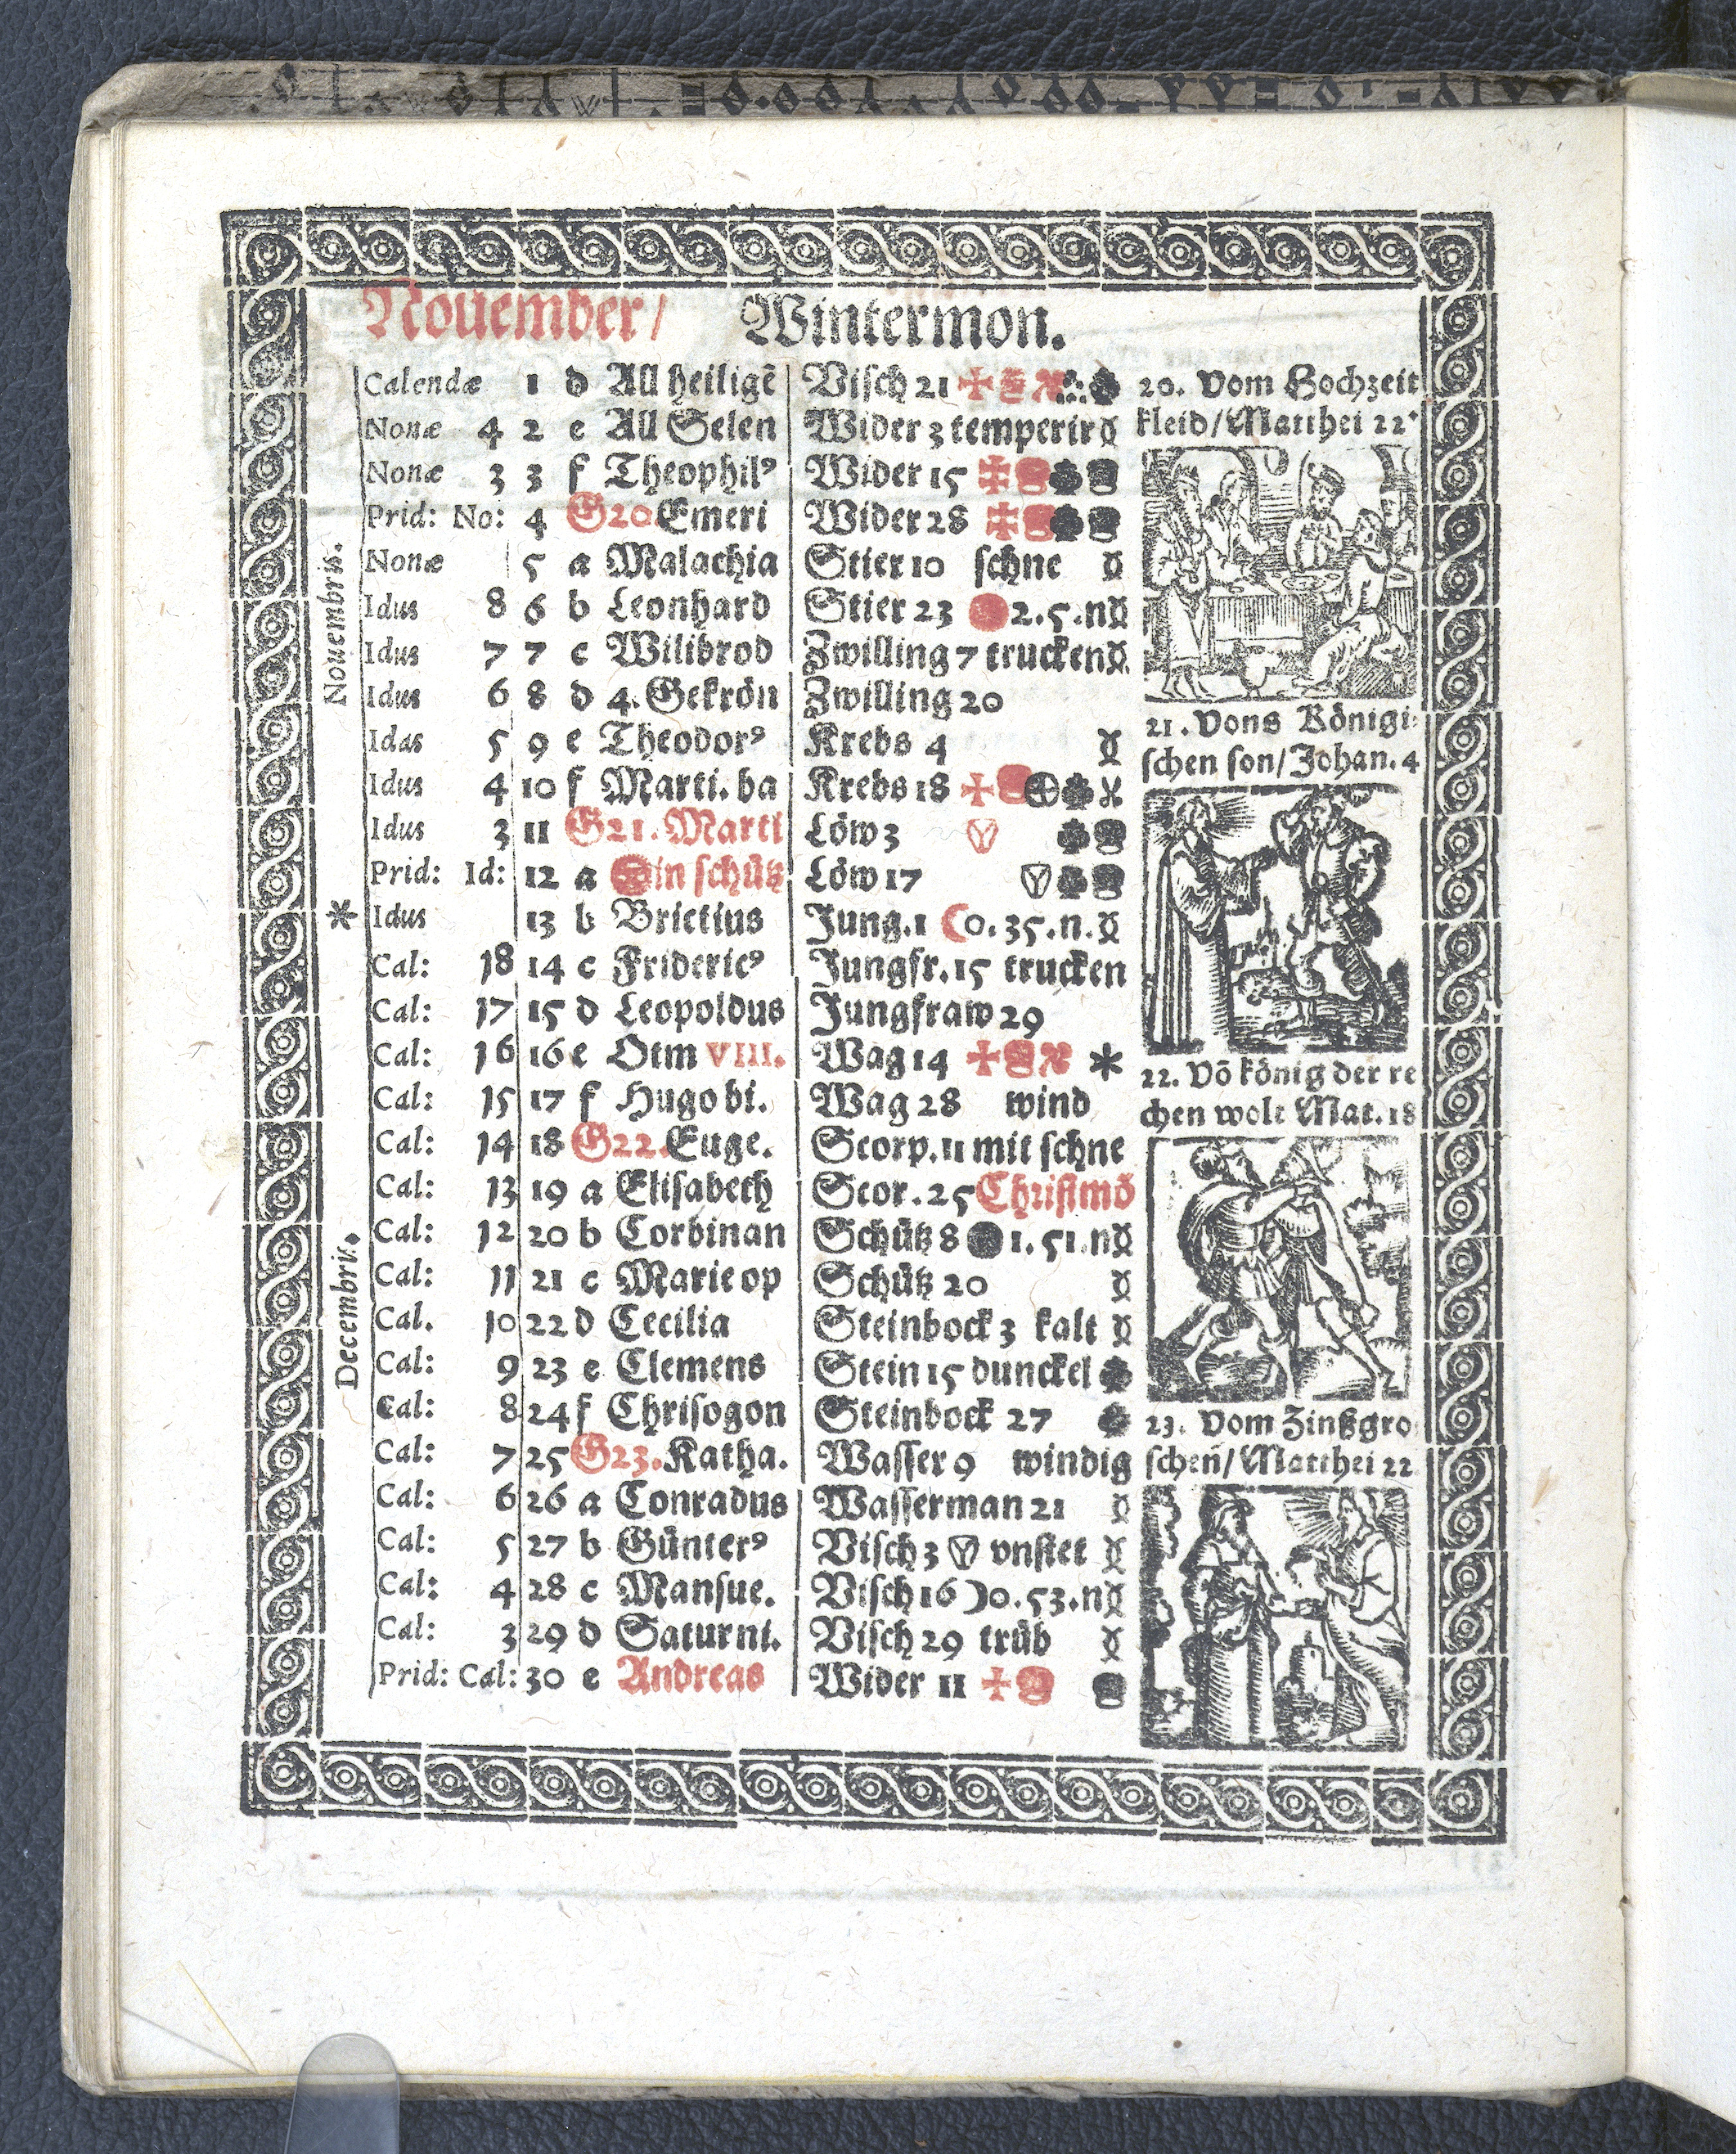 Nouember/ Wintermon.
Calendæ 1 d All heiligẽ Visch 21
Nonæ 4 2 e All Selen Wider 3 temperir
Nonæ 3 3 f Theophilꝰ Wider 15
Prid: No: 4 G20. Emeri Wider 28
Nonæ 5 a Malachia Stier 10 schne
Idus 8 6 b Leonhard Stier 23 2.5.n
Idus 7 7 c Wilibrod Zwilling 7 trucken
Idus 6 8 d 4. Gekrön Zwilling 20
Idas 5 9 e Theodorꝰ Krebs 4
Idus 4 10 f Marti. ba Krebs 18
Idus 3 11 G21. Marti Löw 3
Prid: Id: 12 a in schütz Löw 17
* Idus 13 b Brictius Jung. 1 0.35.n.
Cal: 18 14 c Fridericꝰ Jungfr. 15 trucken
Cal: 17 15 d Leopoldus Jungfraw 29
Cal: 16 16 e Otm VIII. Wag 14 *
Cal: 15 17 f Hugo bi. Wag 28 wind
Cal: 14 18 G22. Euge. Scorp. 11 mit schne
Cal: 13 19 a Elisabeth Scor. 25 Christmõ
Cal: 12 20 b Corbinan Schütz 8 1.51.n
Cal: 11 21 c Marie op Schütz 20
Cal. 10 22 d Cecilia Steinbock 3 kalt
Cal: 9 23 e Clemens Stein 15 dunckel
Cal: 8 24 f Chrisogon Steinbock 27
Cal: 7 25 G23. Katha. Wasser 9 windig
Cal: 6 26 a Conradus Wasserman 21
Cal: 5 27 b Günterꝰ Visch 3 vnstet
Cal: 4 28 c Mansue. Visch 16 0.53.n
Cal: 3 29 d Saturni. Visch 29 trüb
Prid: Cal: 30 e Andreas Wider 11
Nouembris.
Decembris.
20. Vom Hochzeit
kleid/Matthei 22.
21. Vons Königi:
schen son/Johan. 4
22. Võ könig der re
chen wolt Mat. 18
23. Vom Zinßgro
schen/Matthei 22